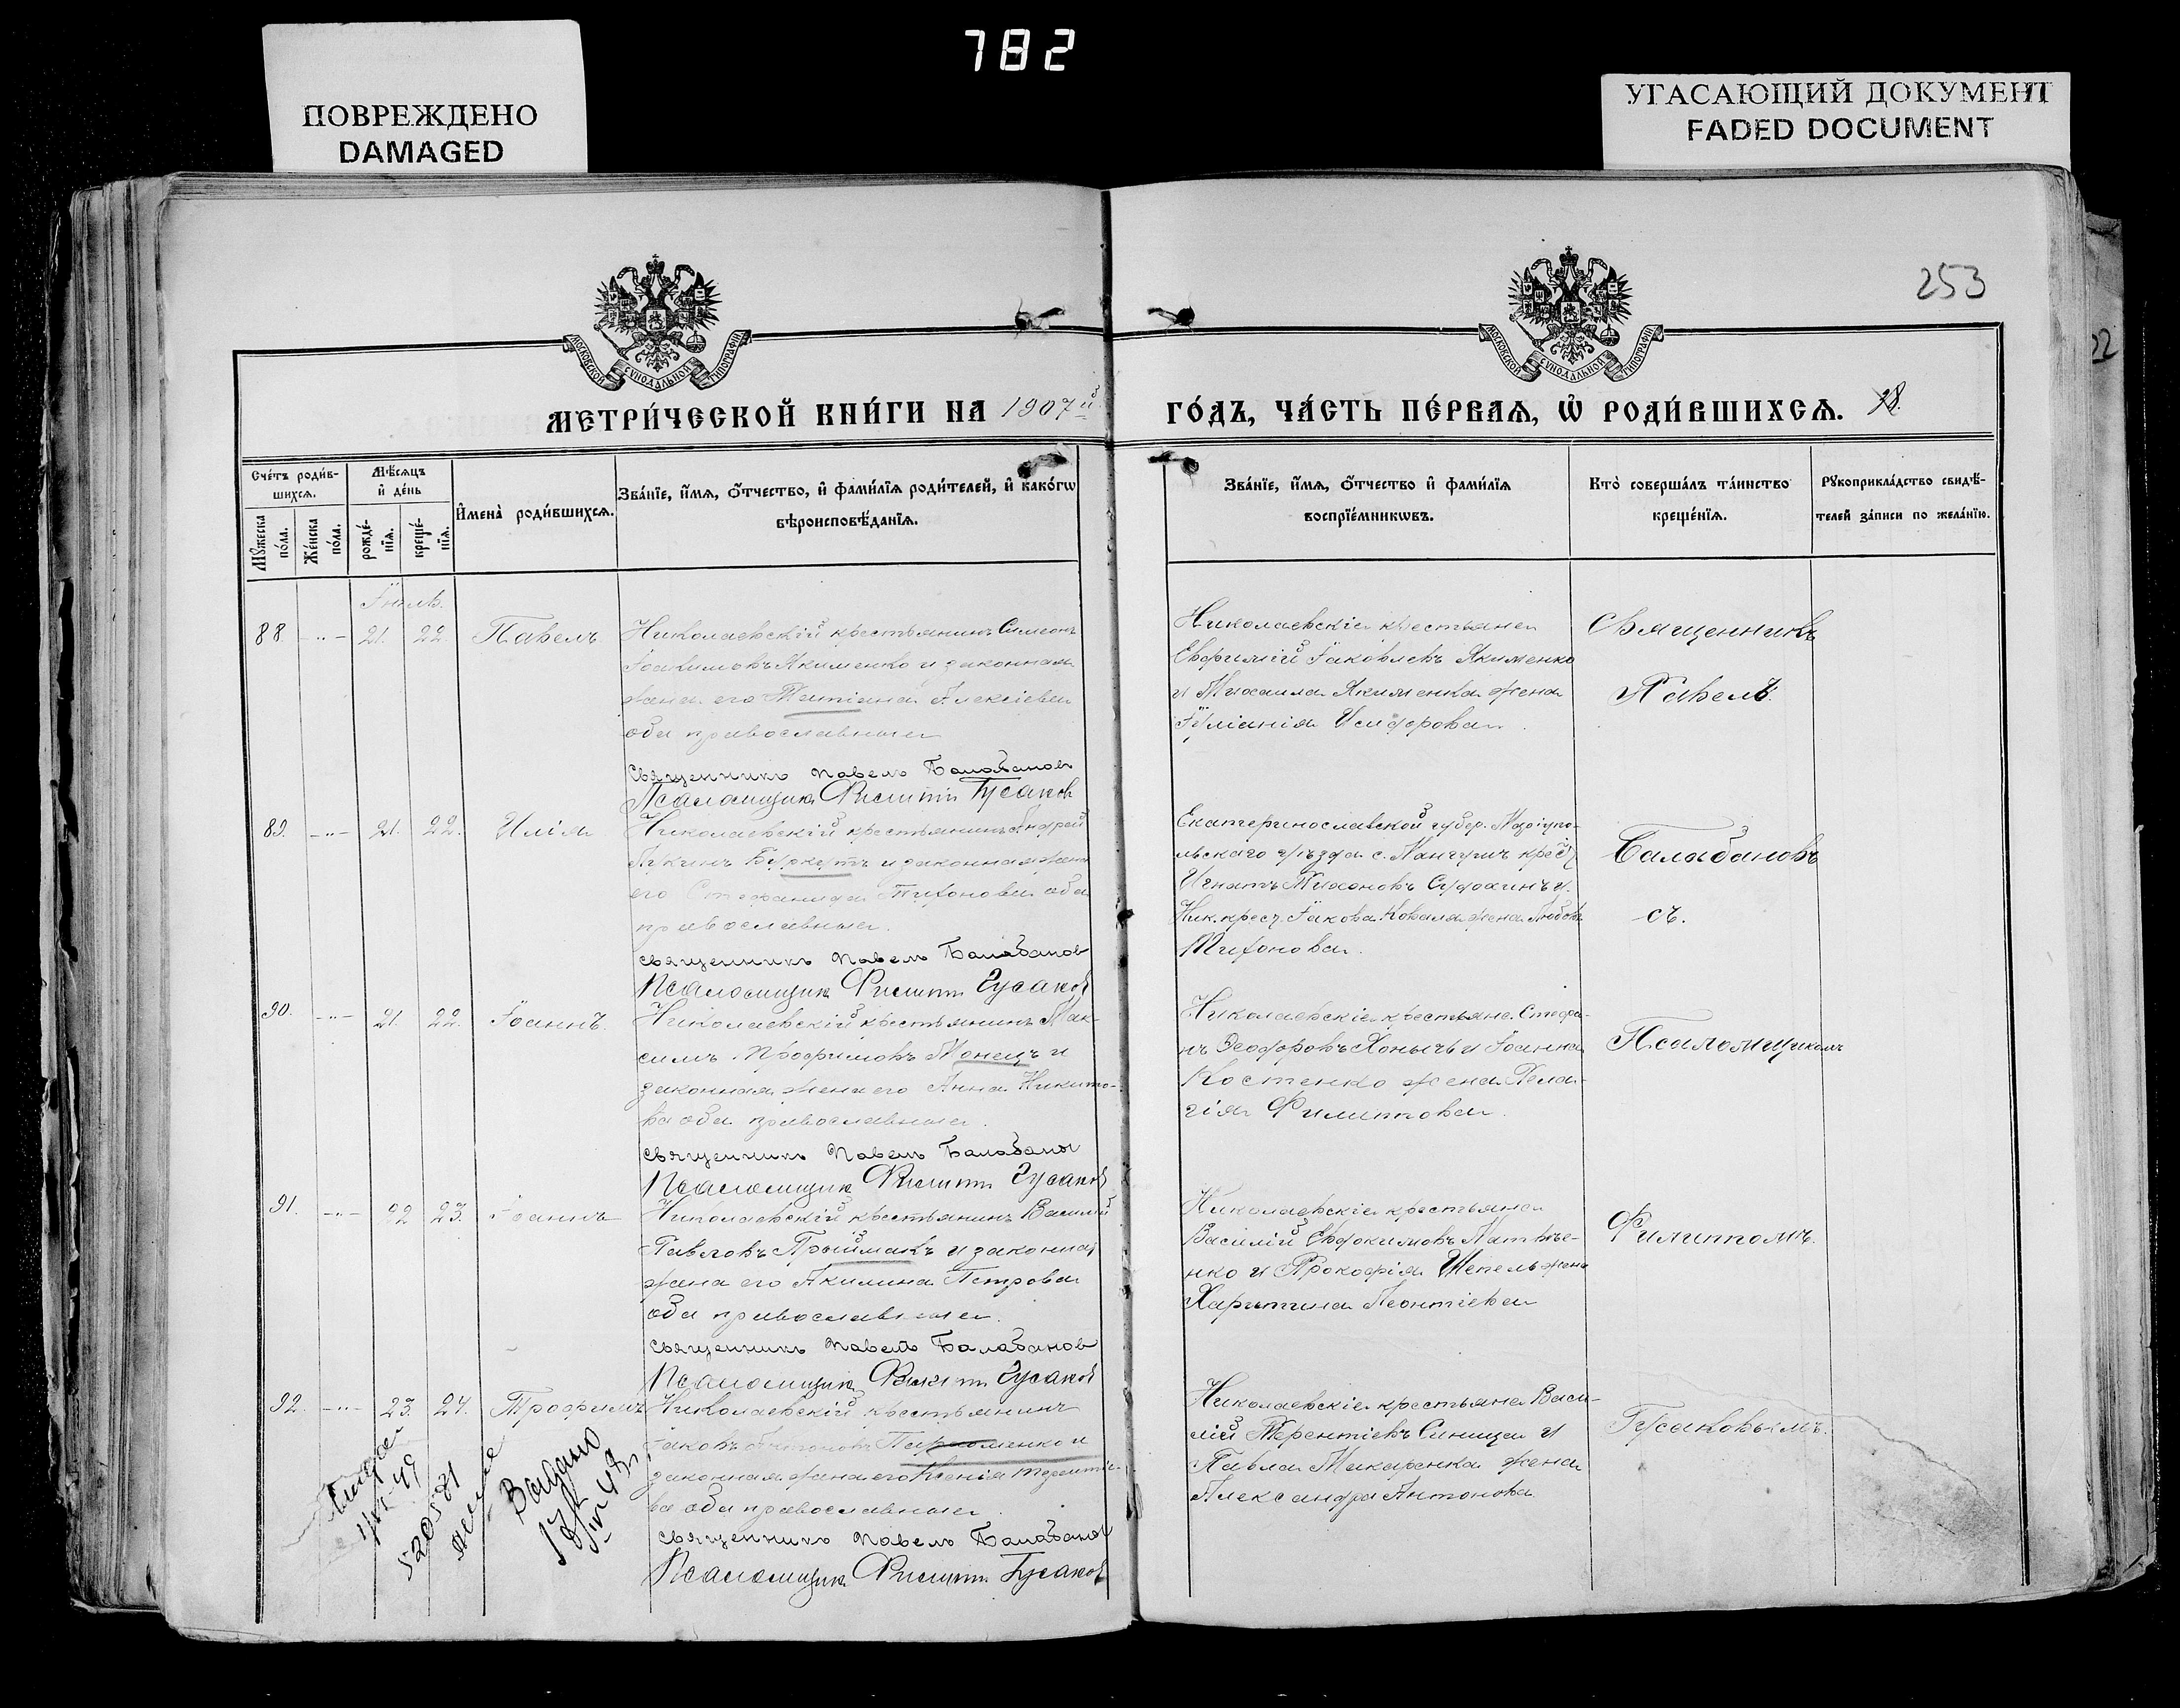 782
ПОВРЕЖДЕНО
DAMAGED
УГАСАЮЩИЙ ДОКУМЕНТ
FADED DOCUMENT
253
22
МОСКОВСКОЙ СУНОДАЛЬНОЙ ТИПОГРАФІИ
МОСКОВСКОЙ СУНОДАЛЬНОЙ ТИПОГРАФІИ
МЕТРИ́ЧЕСКОЙ КНИ́ГИ НА 1907й
ГО́ДЪ, ЧА́СТЬ ПЕ́РВАЯ, Ѡ РОДИ́ВШИХСЯ. 28.
Сче́тъ роди́в-
шихся.
Мѣ́сяцъ
и҆ де́нь
Мꙋ́жеска по́ла.
Же́нска по́ла.
рожде́-
нїя.
креще́-
нїя.
И҆мена̀ роди́вшихся.
Зва́нїе, и҆́мя, о҆́тчество, и҆ фами́лїя роди́телей, и҆ како́гѡ
вѣроисповѣ́данїя.
Зва́нїе, и҆́мя, о҆́тчество и҆ фами́лїя
воспрїе́мникѡвъ.
Кто̀ соверша́лъ та́инство
креще́нїя.
Рꙋкоприкла́дство свидѣ́-
телей за́писи по жела́нїю.
Іюль.
88. -"- 21. 22. Павелъ
Николаевскій крестьянинъ Симеонъ
Іоакимовъ Якименко и законная
жена его Татіана Алексіева
оба православные
Священникъ Павелъ Балабановъ
Псаломщикъ Филиппъ Гусаковъ
Николаевскіе крестьяне
Евфимій Іаковлевъ Якименко
и Михаила Якименка жена
Іуліанія Исидорова
Священникъ
Павелъ
89. -"- 21. 22. Илія
Николаевскій крестьянинъ Андрей
Лукинъ Буркутъ и законная жена
его Стефанида Тихонова оба
православные.
Священникъ Павелъ Балабановъ
Псаломщикъ Филиппъ Гусаковъ
Екатеринославской губер. Маріупо-
льскаго уѣзда с. Мангушъ крес.
Игнатъ Тихоновъ
Ник. крес. Іакова Коваля жена Любовь
Тихонова.
Балабановъ
съ.
90. -"- 21. 22. Іоаннъ.
Николаевскій крестьянинъ Мак-
симъ Трофимовъ Монецъ и
законная жена его Анна Никито-
ва оба православные.
Священникъ Павелъ Балабановъ
Псаломщикъ Филиппъ Гусаковъ
Николаевскіе крестьяне Стефа-
нъ Ѳеодоровъ и Іоанна
Костенко жена Пела-
гія Филиппова.
Псаломщикомъ
91. -"- 22 23. Іоаннъ
Николаевскій крестьянинъ Василій
Павловъ Пріймакъ и законная
жена его Акилина Петрова
оба православные.
Священникъ Павелъ Балабановъ
Псаломщикъ Филиппъ Гусаковъ
Николаевскіе крестьяне
Василій Евдокимовъ Матвѣе-
нко и Прокофія Шепель жена
Харитина Леонтіева
Филиппомъ.
92. -"- 23. 24. Трофимъ
Николаевскій крестьянинъ
Іаковъ Антоновъ Пархоменко и
законная жена его Ксенія Терентіе-
ва оба православные.
Священникъ Павелъ Балабановъ
Псаломщикъ Филиппъ Гусаковъ
Николаевскіе крестьяне Васи-
лій Терентіевъ Синица и
Павла Макаренка жена
Александра Антонова
Гусаковымъ.
520571
Выдано